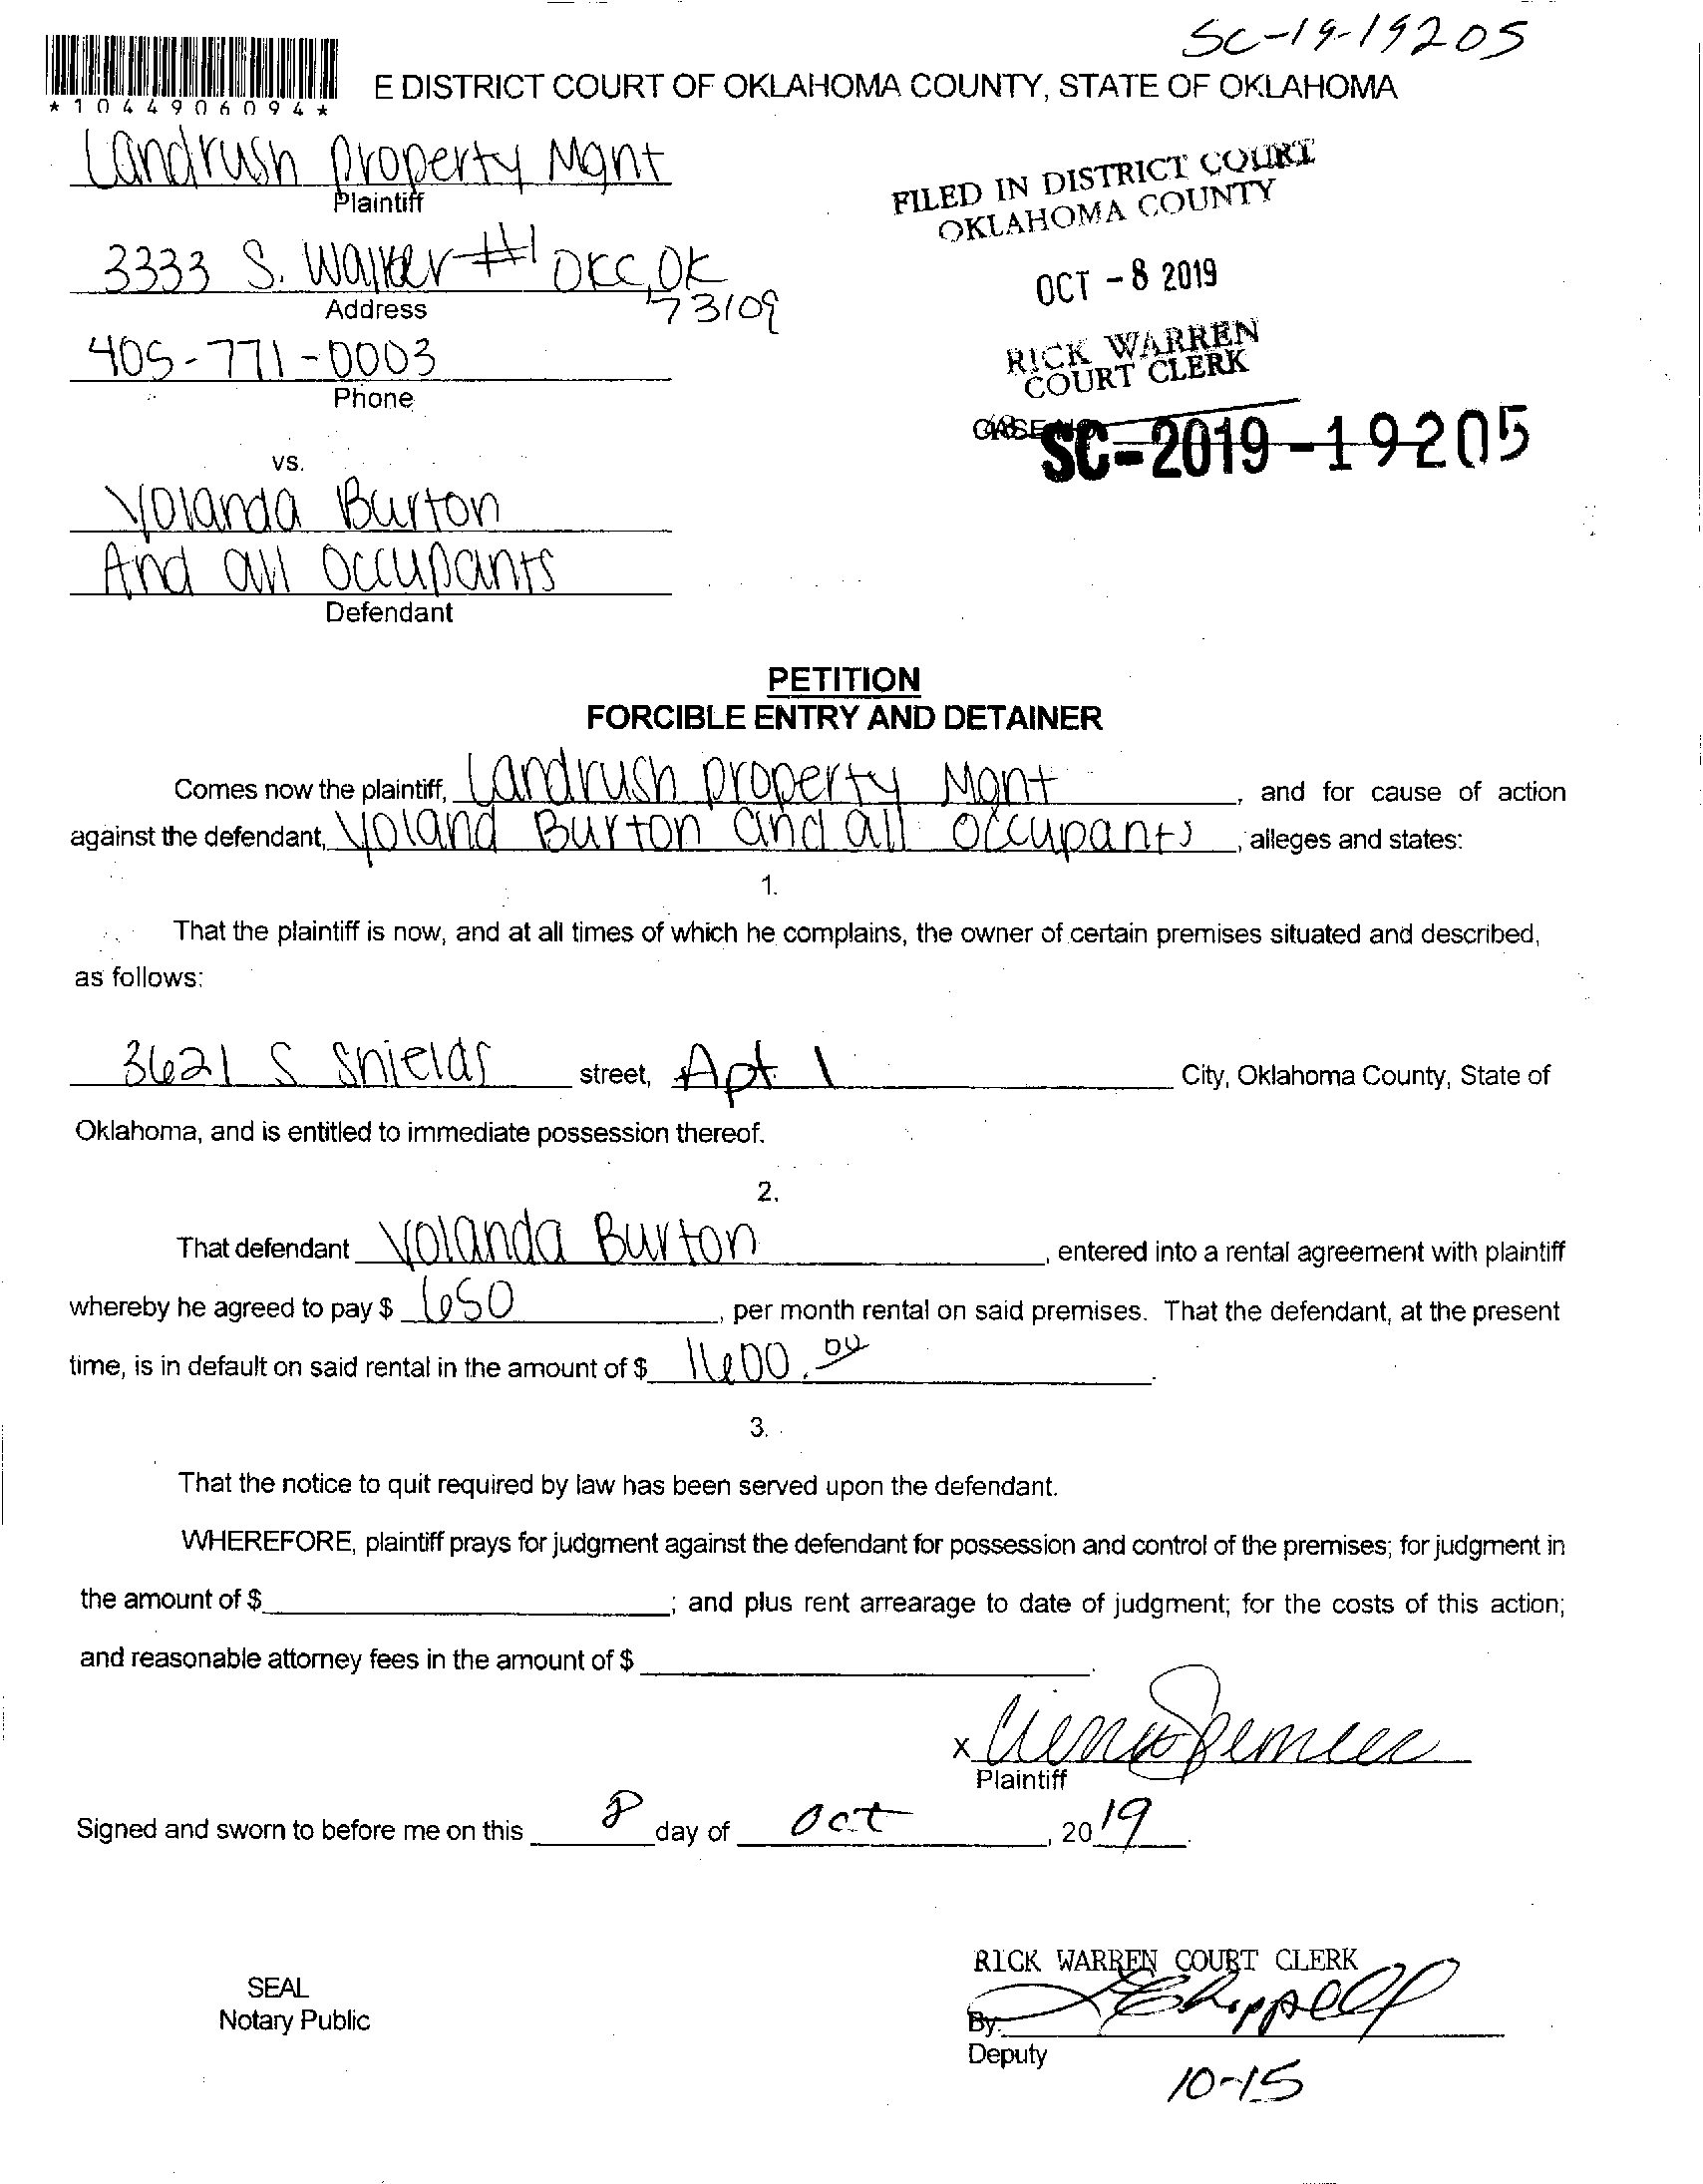 SC-19-19205
*1044906094*
E DISTRICT COURT OF OKLAHOMA COUNTY, STATE OF OKLAHOMA
Landrush Property Mgnt
Plaintiff
FILED IN DISTRICT COURT
OKLAHOMA COUNTY
3333 S. Walker #1 OKC, OK
73109
Address
OCT - 8 2019
405-771-0003
Phone
RICK WARREN
COURT CLERK
SC-2019-19205
vs.
Yolanda Burton
And all Occupants
Defendant
PETITION
FORCIBLE ENTRY AND DETAINER
Comes now the plaintiff, Landrush property Mgnt, and for cause of action
against the defendant, Yoland Burton and all occupants, alleges and states:
1.
That the plaintiff is now, and at all times of which he complains, the owner of certain premises situated and described,
as follows:
3621 S Shields street, Apt 1 City, Oklahoma County, State of
Oklahoma, and is entitled to immediate possession thereof.
2.
That defendant Yolanda Burton, entered into a rental agreement with plaintiff
whereby he agreed to pay $ 650, per month rental on said premises. That the defendant, at the present
time, is in default on said rental in the amount of $ 1600.00.
3.
That the notice to quit required by law has been served upon the defendant.
WHEREFORE, plaintiff prays for judgment against the defendant for possession and control of the premises; for judgment in
the amount of $; and plus rent arrearage to date of judgment; for the costs of this action;
and reasonable attorney fees in the amount of $.
x
Plaintiff
Signed and sworn to before me on this 8 day of Oct, 2019.
RICK WARREN COURT CLERK
SEAL
Notary Public
By: Chappell
Deputy
10-15